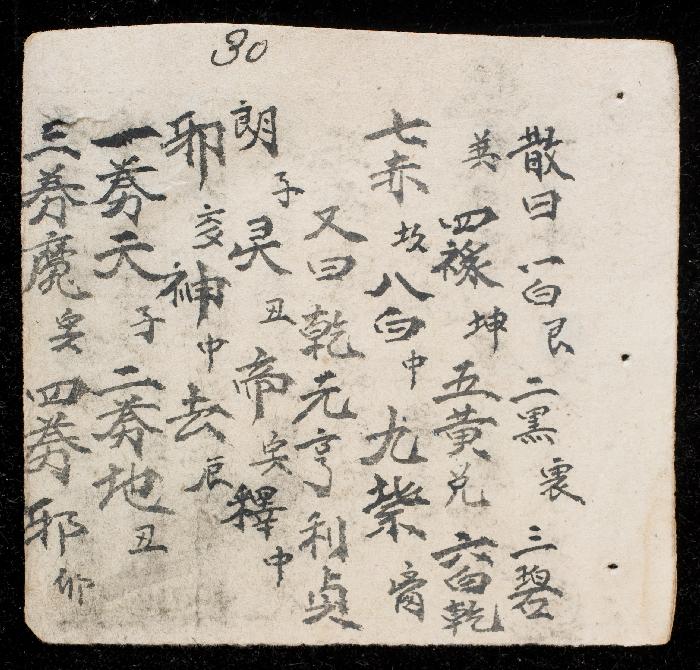 散曰一白艮二黑震三碧
巽四祿坤五黄兑六白乾
七赤坎八白中九紫
又曰乾元亨利貞
朗子灵丑帝寅釋中
邪亥神中去辰
一券天子二券地丑
三券魔寅四券邪卯
30